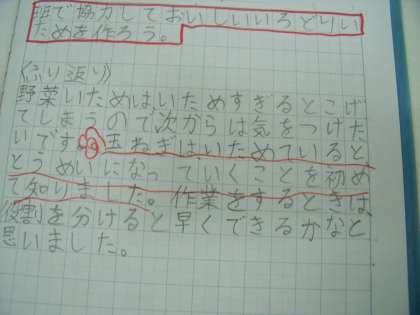 班で協力しておいしいいろどりい
ためを作ろう。
〈ふり返り〉
野菜いためは、いためすぎるとこげ
てしまうので次からは気をつけた
いです。玉ねぎはいためていると、
とうめいになっていくことを初め
て知りました。作業をするときは、
役割を分けると早くできるかなと
思いました。